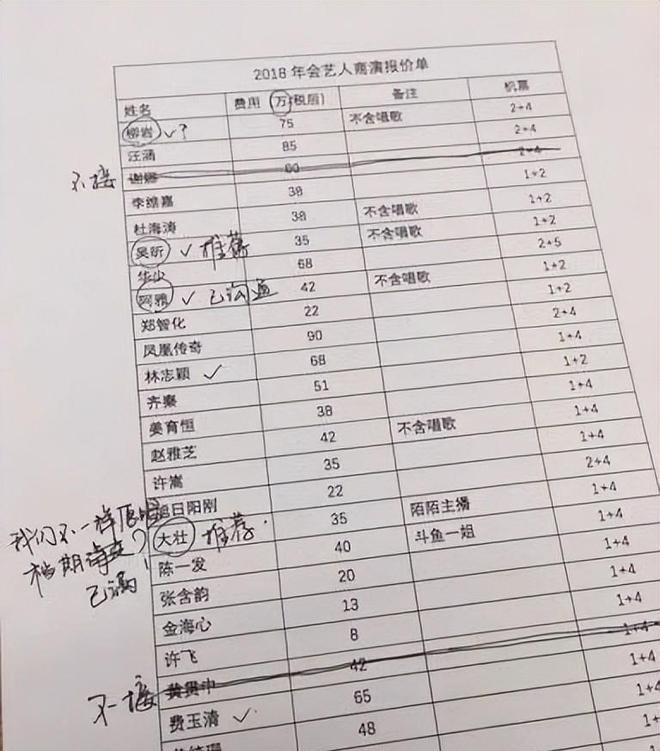 2018 年会艺人商演报价单
姓名 费用 万(税后) 备注 机票
柳岩 ✓? 75 不含唱歌 2+4
汪涵 85 2+4
不接 谢娜 2+4
李维嘉 38 1+2
杜海涛 38 不含唱歌 1+2
吴昕 ✓ 推荐 35 不含唱歌 1+2
华少 68 2+5
阿雅 ✓ 已沟通 42 不含唱歌 1+2
郑智化 22 1+2
凤凰传奇 90 2+4
林志颖 ✓ 68 1+4
齐秦 51 1+2
姜育恒 38 1+4
赵雅芝 42 不含唱歌 1+4
许嵩 35 1+4
旭日阳刚 22 2+4
我们不一样原唱
档期
已沟
大壮 推荐. 35 陌陌主播 1+4
陈一发 40 斗鱼一姐 1+4
张含韵 20 1+4
金海心 13 1+4
许飞 8 1+4
不接 黄贯中 42 1+4
费玉清 ✓ 65 1+4
48 1+4
1+